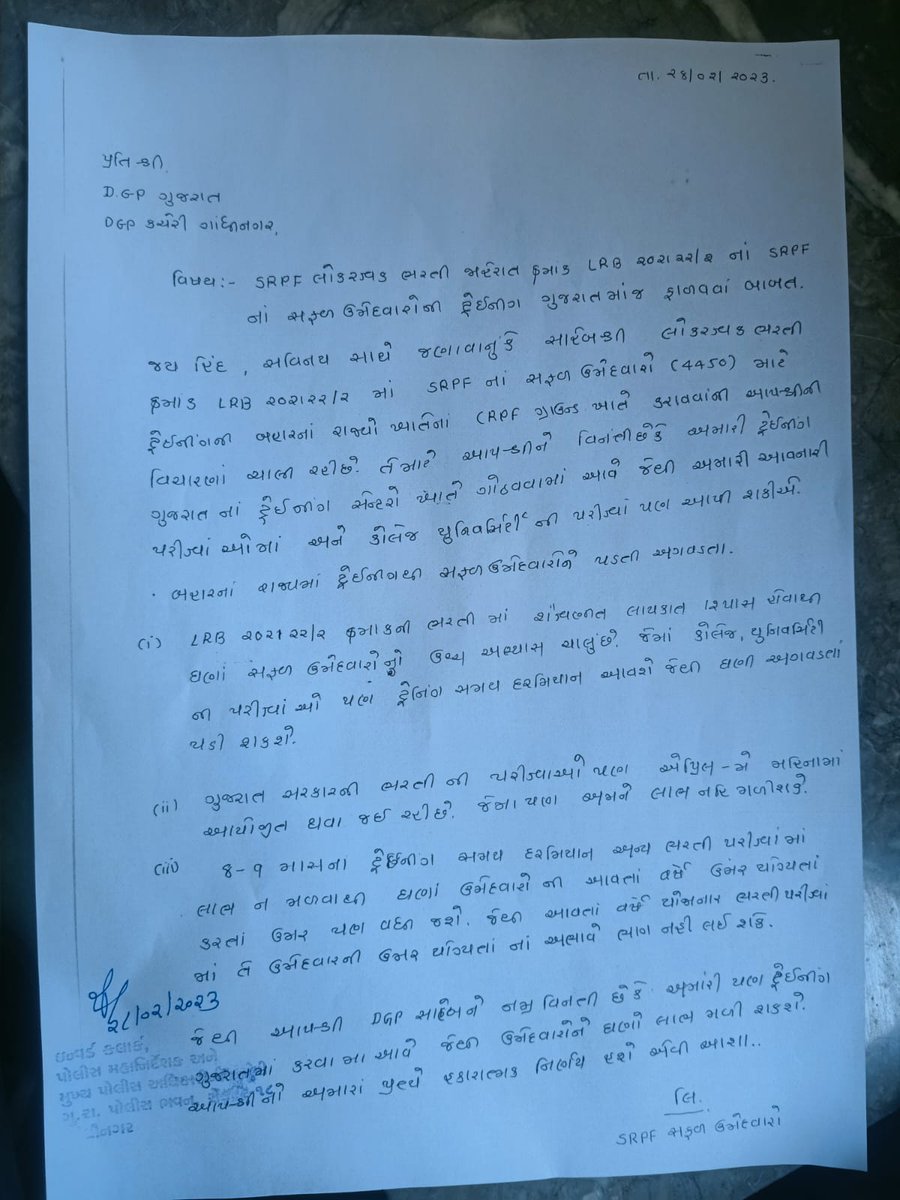 તા. ૨૪/૦૨/૨૦૨૩.
પ્રતિ શ્રી.
D.G.P ગુજરાત
DGP કચેરી ગાંધીનગર,
વિષય:- SRPF લોકરક્ષક ભરતી જાહેરાત ક્રમાક LRB ૨૦૨૧૨૨/૨ નાં SRPF
નાં સફળ ઉમેદવારોની ટ્રેઈનીગ ગુજરાતમાંજ ફાળવવાં બાબત.
જય હિંદ, સવિનય સાથે જણાવાનું કે સાહેબ શ્રી લોકરક્ષક ભરતી
ક્રમાક LRB ૨૦૨૧૨૨/૨ માં SRPF નાં સફળ ઉમેદવારો (4450) માટે
ટ્રેઈનીંગની બહારનાં રાજ્યો ખાતેનાં CRPF ગ્રાઉન્ડ ખાતે કરાવવાંની આપશ્રીની
વિચારણાં ચાલી રહી છે. તે માટે આપશ્રીને વિનંતી છે કે અમારી ટ્રેઈનીંગ
ગુજરાત નાં ટ્રેઈનીંગ સેન્ટરો ખાતે ગોઠવવામાં આવે જેથી અમારી આવનારી
પરીક્ષાં ઓમાં અને કોલેજ યુનિવર્સિટી ની પરીક્ષાં પણ આપી શકીએ.
· બહારનાં રાજ્યમાં ટ્રેઈનીગથી સફળ ઉમેદવારોને પડતી અગવડતા.
(i) LRB ૨૦૨૧૨૨/૨ ક્રમાકની ભરતી માં શૈક્ષણીત લાયકાત ૧૨પાસ હોવાથી
ઘણાં સફળ ઉમેદવારોનો ઉચ્ચ અભ્યાસ ચાલું છે. જેમાં કોલેજ, યુનિવર્સિટી
ની પરીક્ષાં ઓ પણ ટ્રેનિંગ સમય દરમિયાન આવશે જેથી ઘણી અગવડતાં
પડી શકશે.
(ii) ગુજરાત સરકારની ભરતી ની પરીક્ષાઓ પણ એપ્રિલ-મે મહિનામાં
આયોજીત થવા જઈ રહી છે. જેમા પણ અમને લાભ નહિ મળી શકે.
(iii) 8-9 માસના ટ્રેઈનીગ સમય દરમિયાન અન્ય ભરતી પરીક્ષાં માં
લાભ ન મળવાથી ઘણાં ઉમેદવારો ની આવતાં વર્ષે ઉંમર યોગ્યતાં
કરતાં ઉમર પણ વધી જશે. જેથી આવતાં વર્ષે યોજનાર ભરતી પરીક્ષાં
માં તે ઉમેદવારની ઉમર યોગ્યતાં નાં અભાવે ભાગ નહી લઈ શકે.
જેથી આપશ્રી DGP સાહેબને નમ્ર વિનતી છે કે અમારી પણ ટ્રેઈનીંગ
ગુજરાતમાં કરવા મા આવે જેથી ઉમેદવારોને ઘણો લાભ મળી શકશે.
આપશ્રીનો અમારાં પ્રત્યે હકારાત્મક નિર્ણય હશે એવી આશા..
લિ.
SRPF સફળ ઉમેદવારો
૨૮/૦૨/૨૦૨૩
ઇન્વર્ડ કલાર્ક,
પોલીસ મહાનિર્દેશક અને
મુખ્ય પોલીસ
ગુ.રા. પોલીસ ભવન,